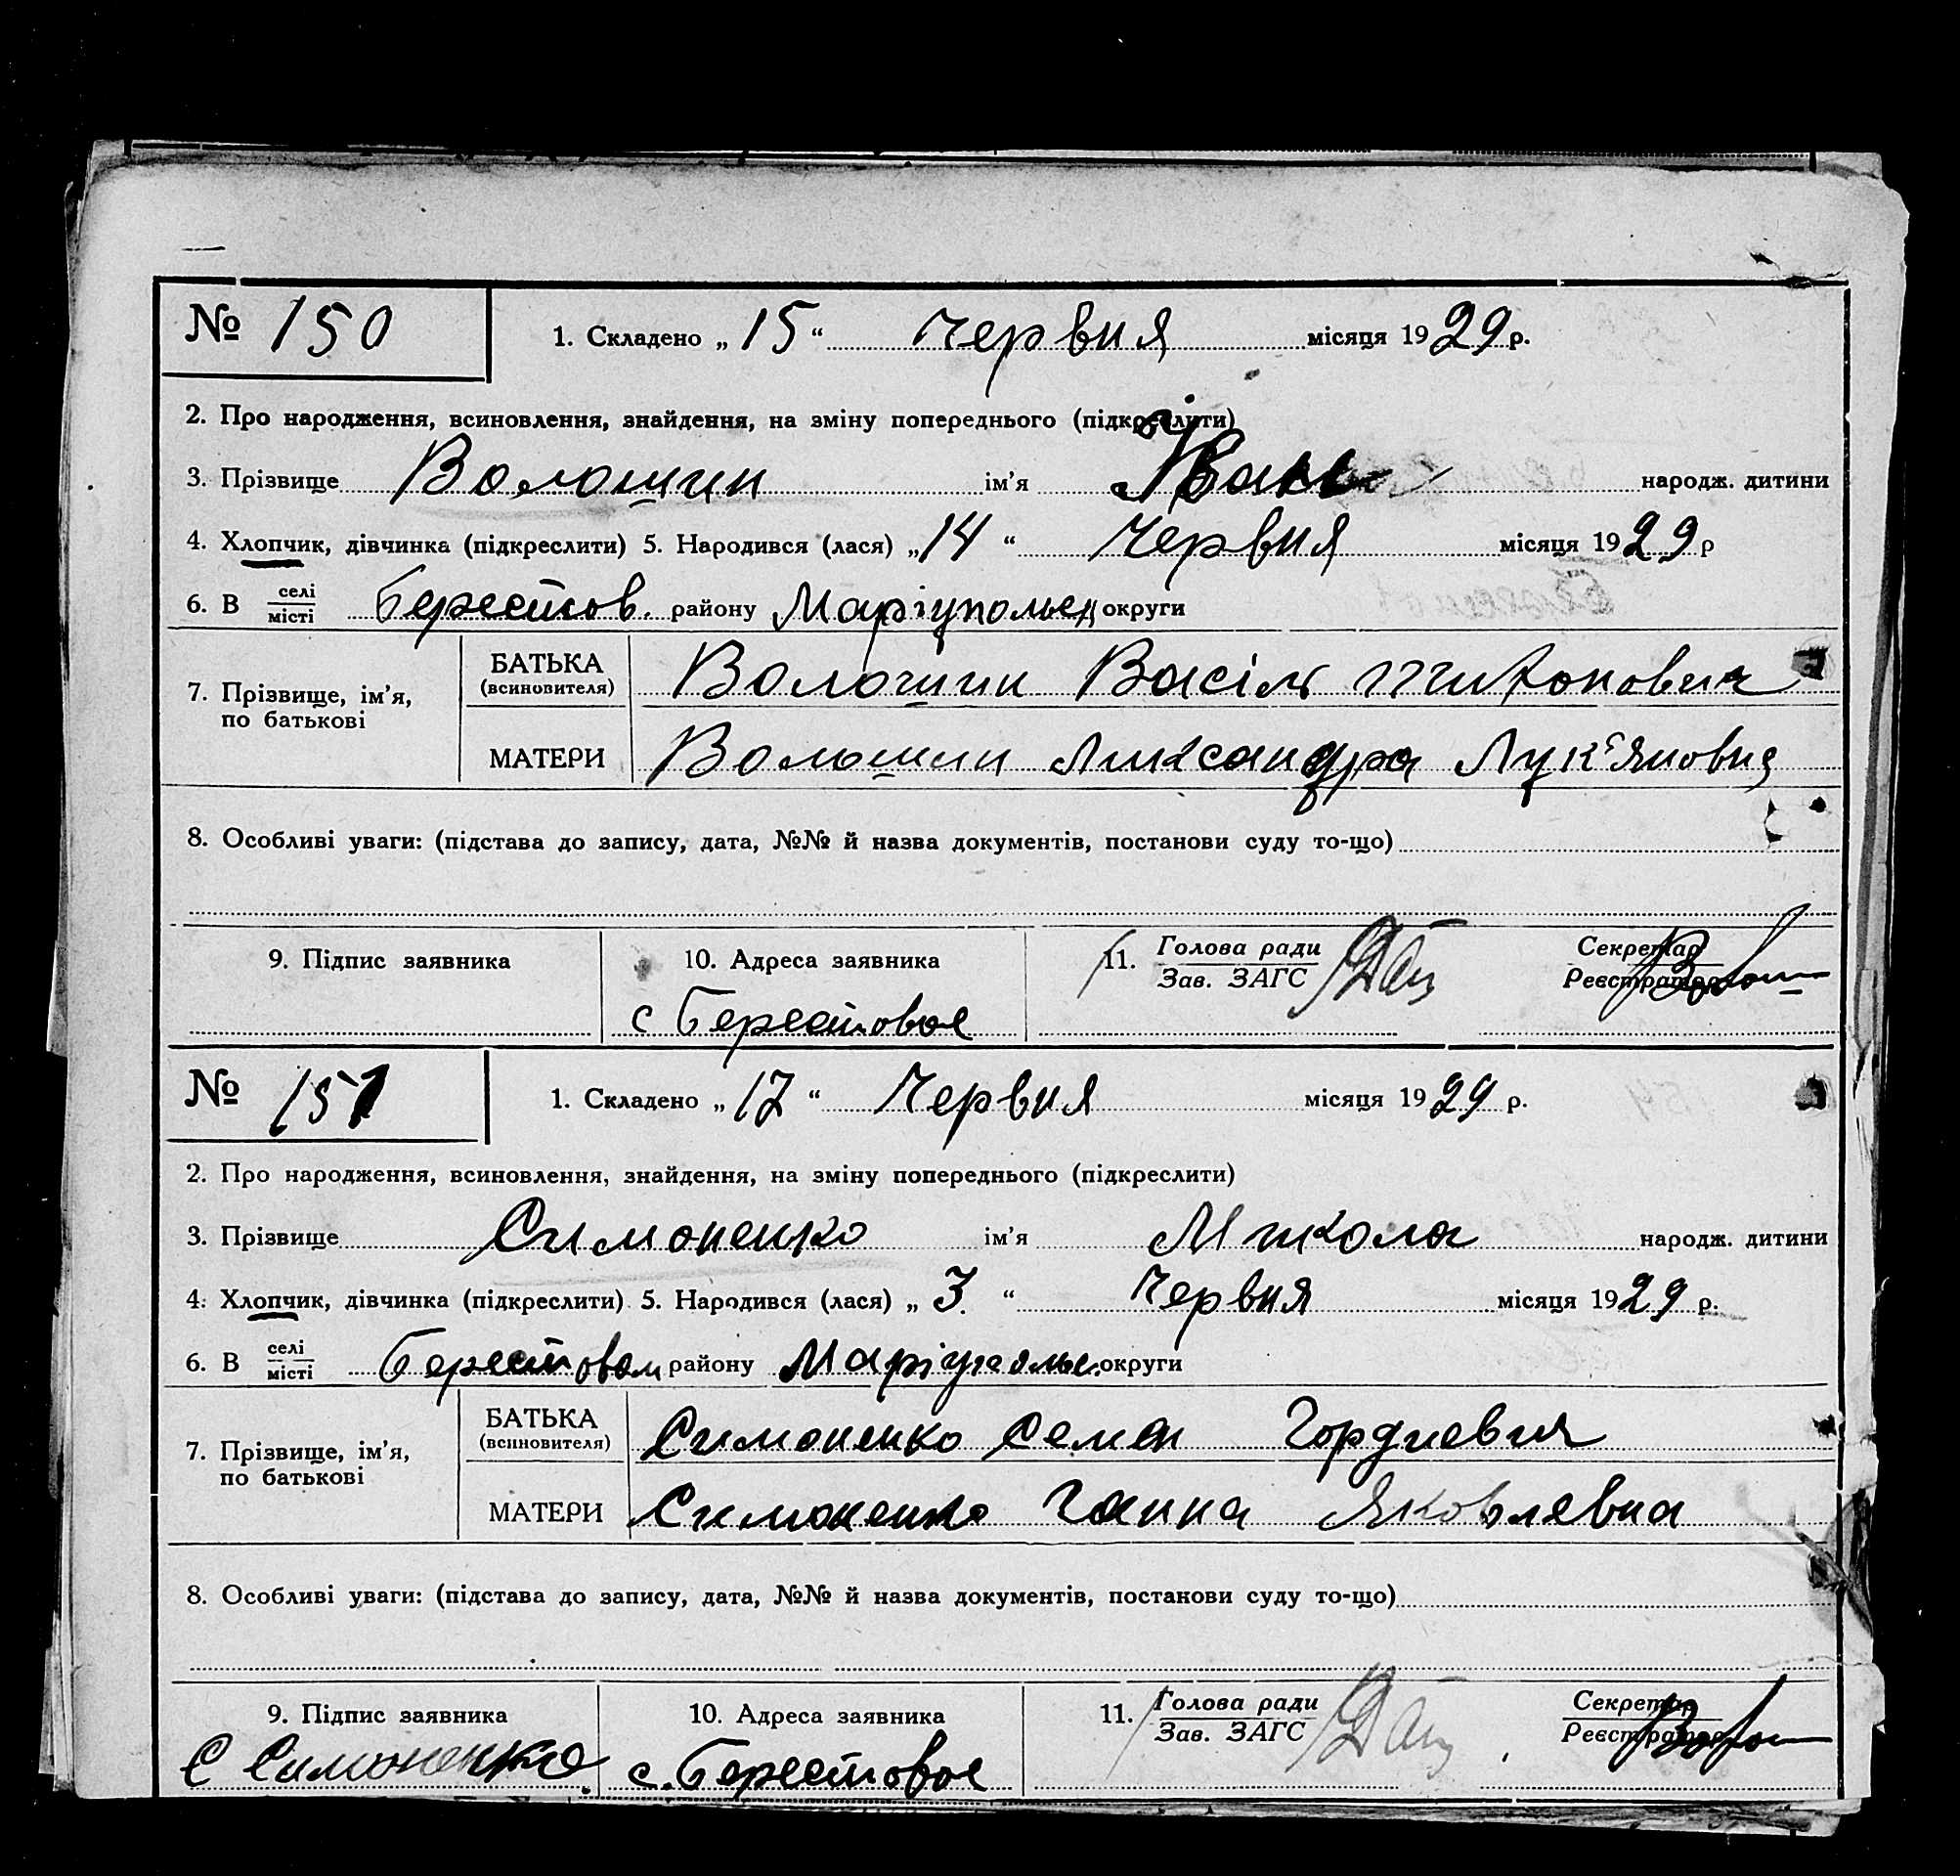 № 150 1. Складено „ 15 “ Червня місяця 1929 р.
2. Про народження, всиновлення, знайдення, на зміну попереднього (підкреслити)
3. Прізвище Волошин ім’я Іван народж. дитини
4. Хлопчик, дівчинка (підкреслити) 5. Народився (лася) „ 14 “ Червня місяця 1929 р
6. В селі місті Берестов. району Маріупольськ округи
7. Прізвище, ім’я, по батькові
БАТЬКА (всиновителя) Волошин Васіль Тихонович
МАТЕРИ Волошин Александра Лук'яновна
8. Особливі уваги: (підстава до запису, дата, №№ й назва документів, постанови суду то-що)
9. Підпис заявника 10. Адреса заявника 11. Голова ради Зав. ЗАГС Секретар Реєстратор
с Берестовое
№ 151 1. Складено „ 17 “ Червня місяця 1929 р.
2. Про народження, всиновлення, знайдення, на зміну попереднього (підкреслити)
3. Прізвище Симоненко ім’я Микола народж. дитини
4. Хлопчик, дівчинка (підкреслити) 5. Народився (лася) „ 3. “ Червня місяця 1929 р.
6. В селі місті Берестовом району Маріупольс. округи
7. Прізвище, ім’я, по батькові
БАТЬКА (всиновителя) Симоненко Семен Гордиевич
МАТЕРИ Симоненко Ганна Яковлевна
8. Особливі уваги: (підстава до запису, дата, №№ й назва документів, постанови суду то-що)
9. Підпис заявника 10. Адреса заявника 11. Голова ради Зав. ЗАГС Секретар Реєстратор
С Симоненко с. Берестовое